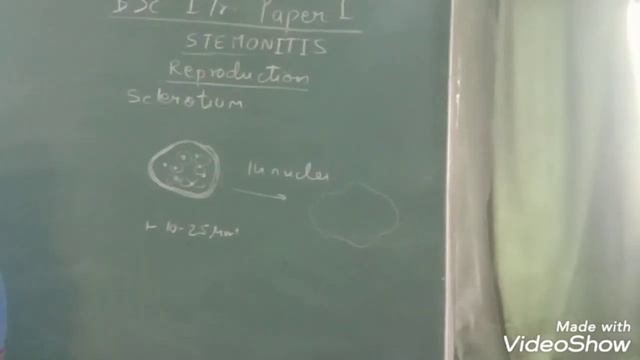 BSc I Yr Paper I
STEMONITIS
Reproduction
Sclerotium
10-25
Made with
VideoShow